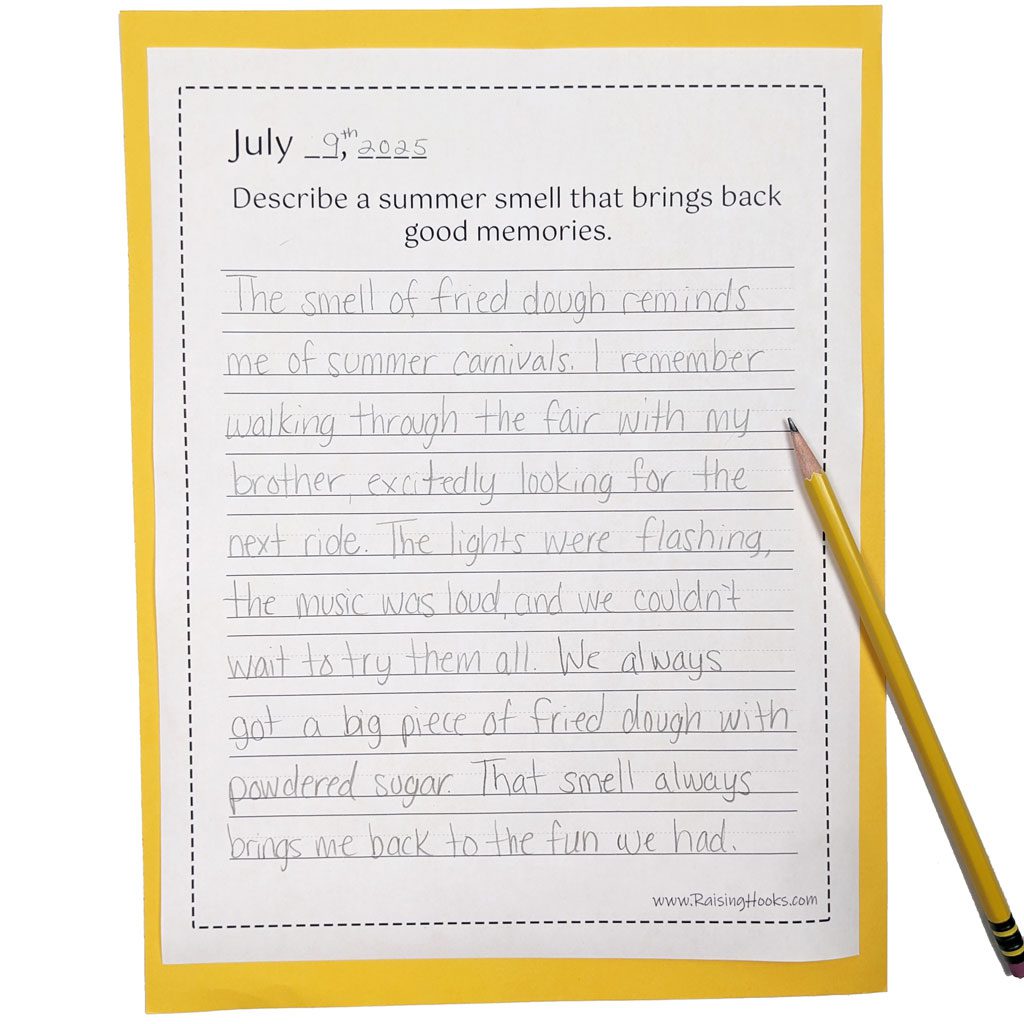 July 9,th 2025
Describe a summer smell that brings back
good memories.
The smell of fried dough reminds
me of summer carnivals. I remember
walking through the fair with my
brother, excitedly looking for the
next ride. The lights were flashing,
the music was loud, and we couldn't
wait to try them all. We always
got a big piece of fried dough with
powdered sugar. That smell always
brings me back to the fun we had.
www.RaisingHooks.com